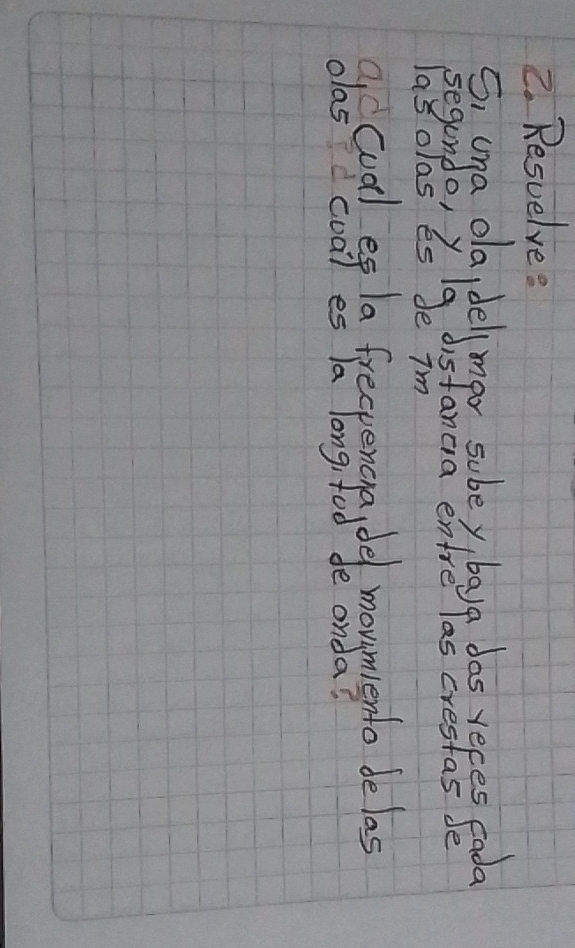 2. Resuelve:
Si una ola, del mar sube y baja dos veces cada
segundo, y la distancia entre las crestas de
las olas es de 1m
a.¿Cuál es la frecuencia, del movimiento de las
olas? ¿cuál es la longitud de onda?